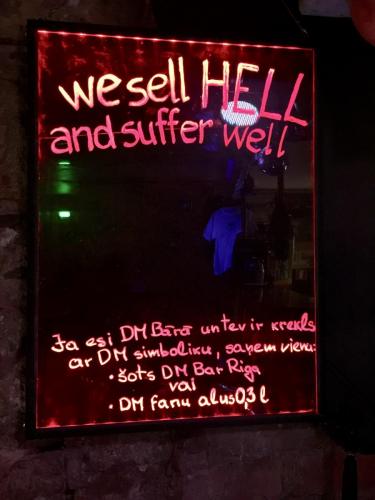 we sell HELL
and suffer well
Ja esi DM Bārā un tev ir krekls
ar DM simboliku, saņem vienu:
• šots DM Bar Riga
vai
• DM fanu alus 0,3 l